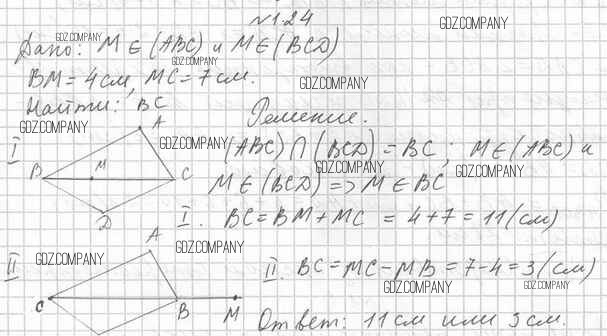 №1.24
GDZ.COMPANY
Дано: GDZ.COMPANY M ∈ (ABC) и M ∈ (BCD)
GDZ.COMPANY
BM = 4 см, MC = 7 см.
GDZ.COMPANY
Найти: BC
GDZ.COMPANY
Решение.
I
A
B
M
C
D
GDZ.COMPANY
(ABC) ∩ (BCD) = BC; M ∈ (ABC) и
GDZ.COMPANY
GDZ.COMPANY
M ∈ (BCD) => M ∈ BC
I. BC = BM + MC = 4 + 7 = 11 (см)
II
A
C
B
M
GDZ.COMPANY
GDZ.COMPANY
II. BC = MC - MB = 7 - 4 = 3 (см)
GDZ.COMPANY
GDZ.COMPANY
GDZ.COMPANY
Ответ: 11 см или 3 см.